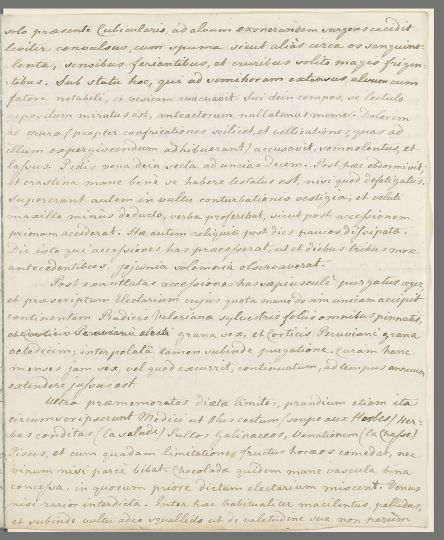 solo præsente Cubiculario, ad alvum exonerandam surgens cecidit
leviter convulsus, cum spuma sicut alias circa os sanguino-
lenta, sensibus feriantibus, et cruribus solito magis frigen-
tibus. Sub statu hoc, qui ad semihoram extensus, alvum cum
fœtore notubili, et vesicam evacuavit. Sui dein compos, se lectulo
repositum miratus est, anteactorum nullatenus memor. Dolorem
ad crura (propter confricationes scilicet, et vellicationes quas ad
illum expergiscendum adhibuerant) accusavit, somnolentus, et
lassus. Pedis vena dein secta ad uncias decem. Post hæc obdormivit,
et crastina mane benè se habere testatus est, nisi quod defatigatus.
Supererant autem in vultu conturbationis vestigia, et veluti
maxillo minus deducto, verba proferebat, sicut post accessionem
primam acciderat. Hæ autem reliquiæ post dies paucos dissipatæ.
Die isto qui accessiones has præcesserat, ut et diebus tribus mox
antecedentibus, jejunia solemnia observaverat.
Post exantlatas accessiones has sæpius eulè purgatus æger,
et præscriptum Electarium cujus quota mane dosim unciam accepit
continentem Radicis Valerianæ sylvestris foliis omnibus pinnatis,
grana sex, et Corticis Peruviani grana
octodecim; interpolata tamen subinde purgatione. Curam hanc
menses jam sex, vel quod excurrit, continuatum, ad tempus annuum
extendere jussus est.
Ultra præmemoratos diætæ limites, prandium etiam ita
circumscripserunt Medici ut Olus coctum (soupe aux Herbes) Her-
bas conditas (la salade) Pullos Galinaceos, Venationem (la Chasse)
Pisces, et cum quadam limitatione fructus horæos comedat, nec
vinum nisi parcè bibat. Chocoladæ quidem mane vascula bina
concessa, in quorum priore dictum electarium miscent. Venus
nisi rarior interdicta. Inter hæc habitualiter macilentus, pallidus,
et subinde vultu adeo squallido ut de valetudine sua non parum